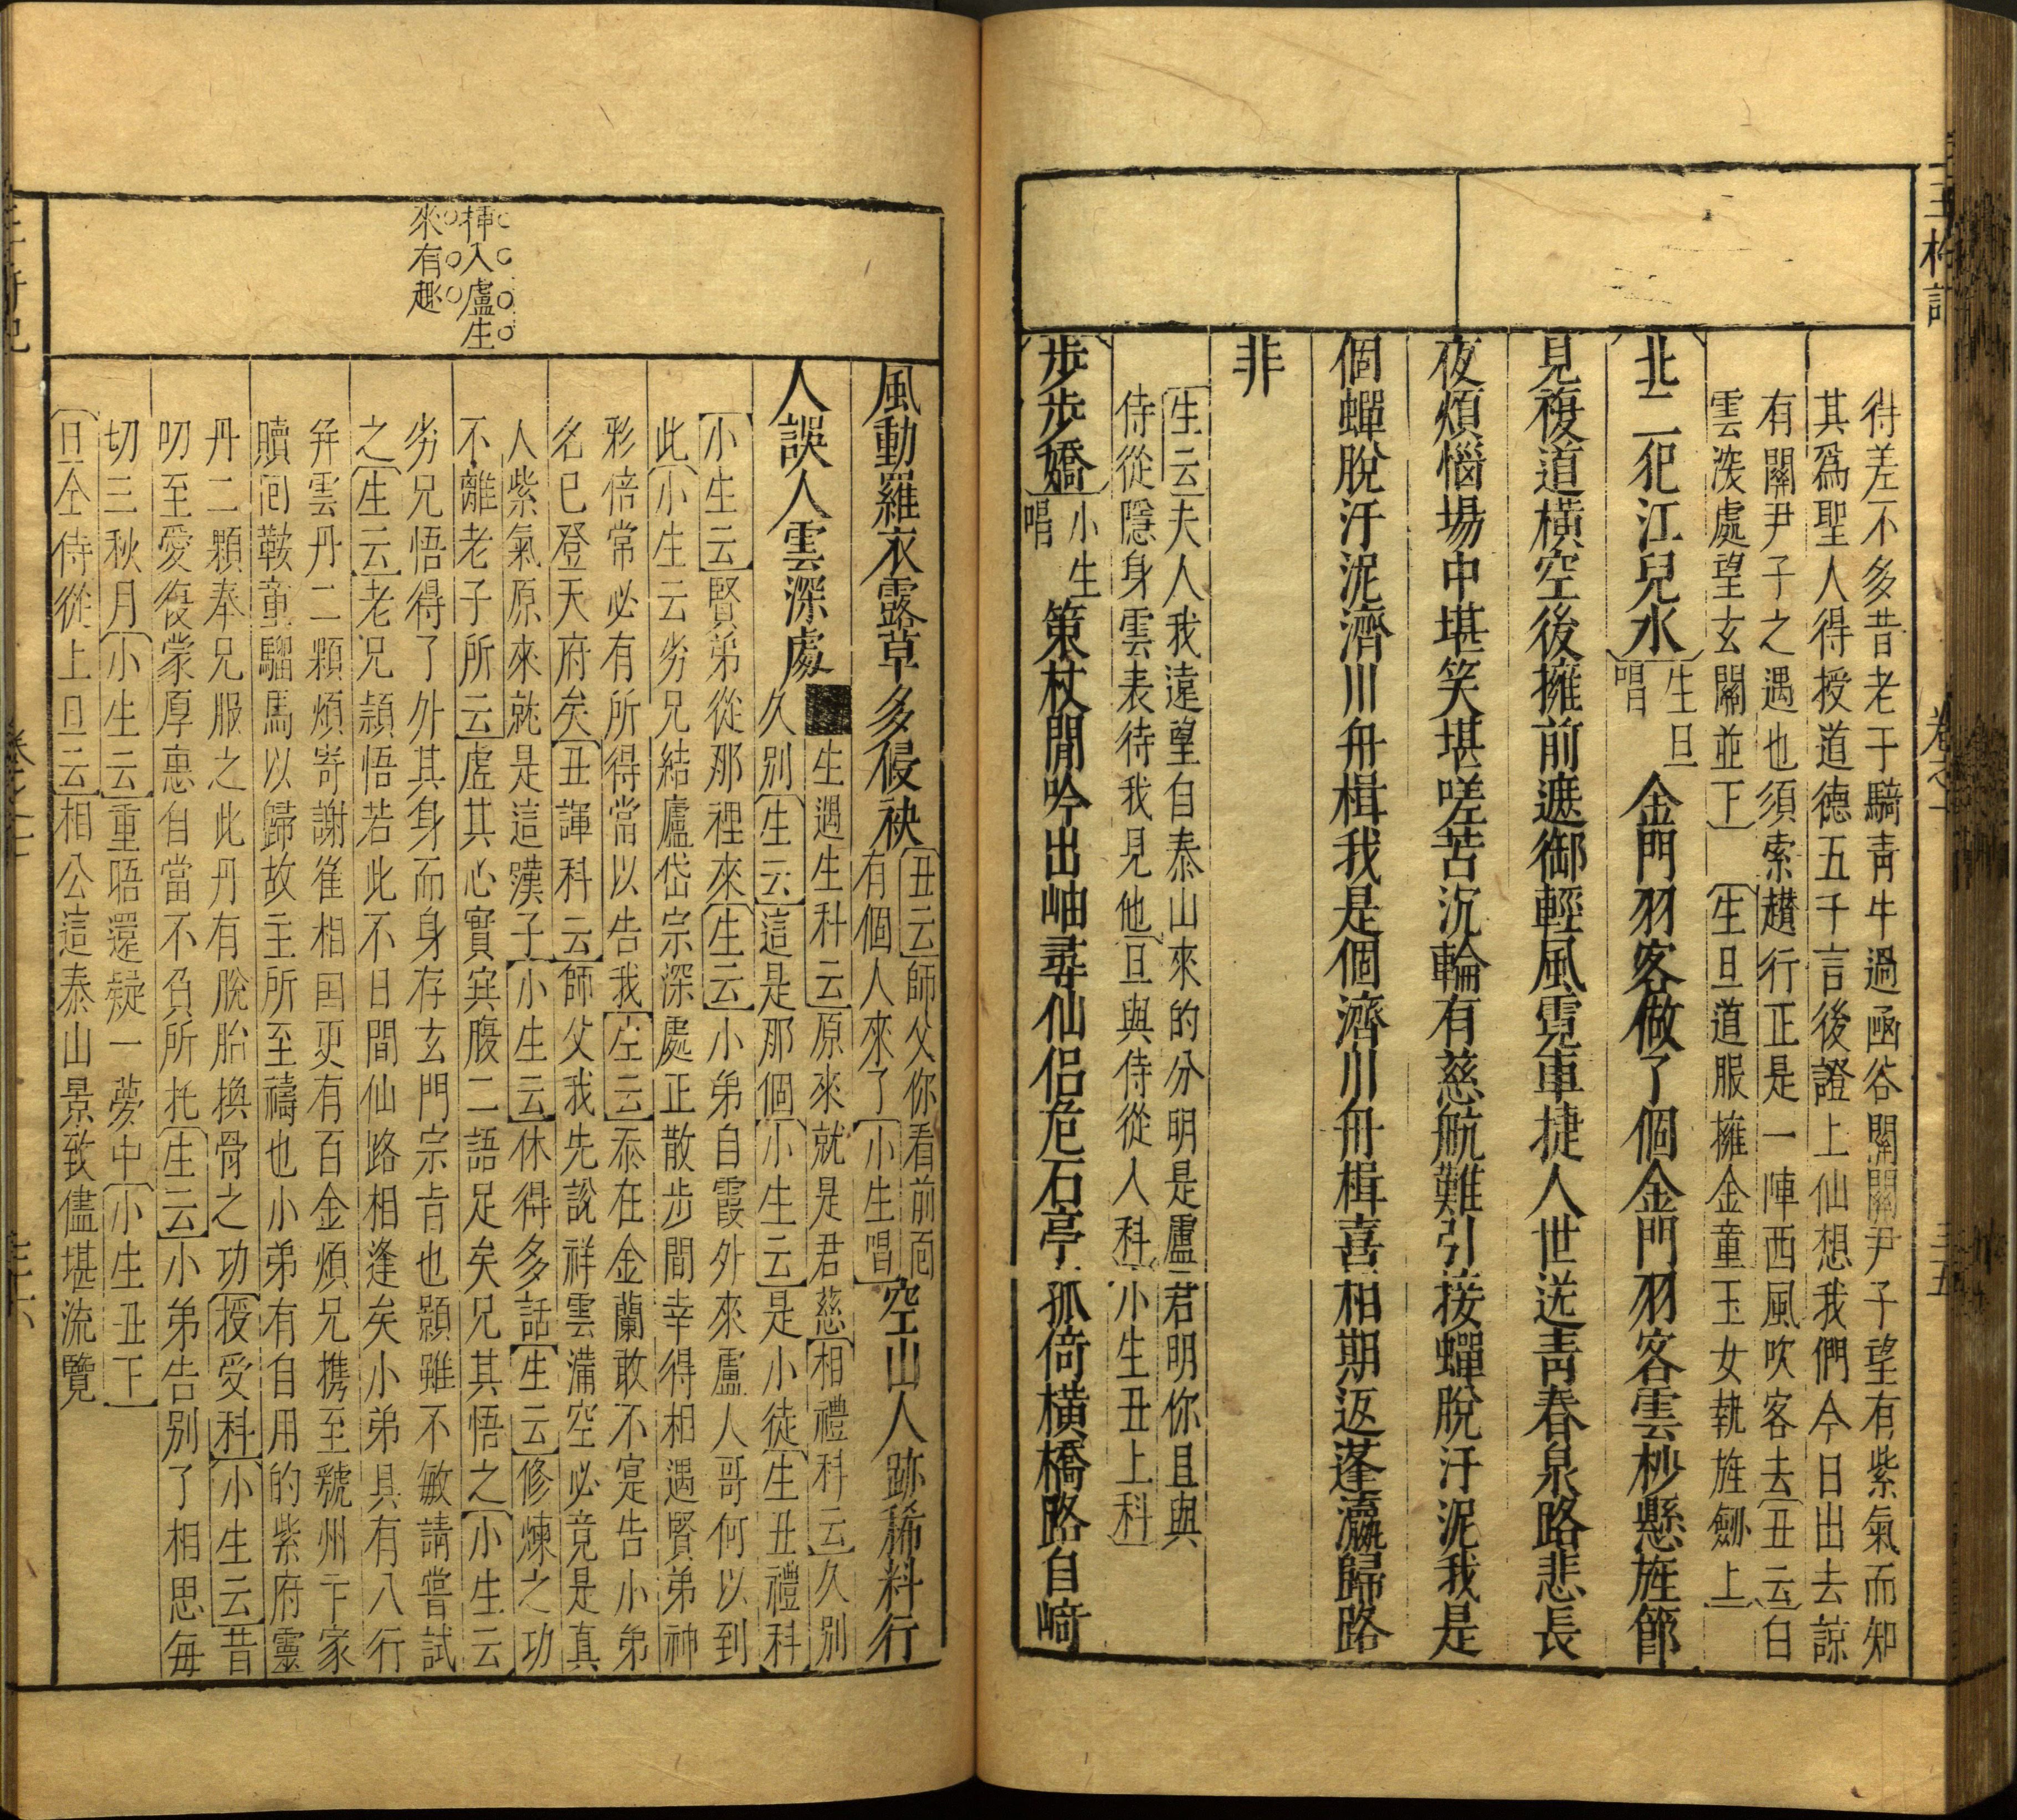 玉杵記
卷之下
三五
得差不多昔老子騎靑牛過函谷關關尹子望有紫氣而知
其爲聖人得授道德五千言後證上仙想我們今日出去諒
有關尹子之遇也須索趲行正是一陣西風吹客去〔丑云〕白
雲深處望玄關並下〕〔生旦道服擁金童玉女執旌劍上〕
北二犯江兒水〔生旦唱〕金門羽客做了個金門羽客雲杪懸旌節
見複道橫空後擁前遮御輕風霓車捷人世送靑春泉路悲長
夜煩惱場中堪笑堪嗟苦沉輪有慈航難引接蟬脫汙泥我是
個蟬脫汙泥濟川舟楫我是個濟川舟楫喜相期返蓬瀛歸路
非
〔生云〕夫人我遠望自泰山來的分明是盧君明你且與
侍從隱身雲表待我見他〔旦與侍從人科〕〔小生丑上科〕
步步嬌〔小生唱〕策杖閒吟出岫尋仙侶危石亭孤倚橫橋路自﨑
挿入盧生
來有趣
風動羅衣露草多侵袂〔丑云〕師父你看前面有個人來了〔小生唱〕空山人跡稀料行
人誤人雲深處■生遇生科云〕原來就是君慈〔相禮科云〕久別
久別〔生云〕這是那個〔小生云〕是小徒〔生丑禮科〕
〔小生云〕賢弟從那裡來〔生云〕小弟自霞外來盧人哥何以到
此〔小生云〕劣兄結廬岱宗深處正散步間幸得相遇賢弟神
彩倍常必有所得當以告我〔生云〕忝在金蘭敢不寔告小弟
名已登天府矣〔丑諢科云〕師父我先說祥雲滿空必竟是眞
人紫氣原來就是這漢子〔小生云〕休得多話〔生云〕修煉之功
不離老子所云虛其心實其腹二語足矣兄其悟之〔小生云〕
劣兄悟得了外其身而身存玄門宗旨也顥雖不敏請嘗試
之〔生云〕老兄穎悟若此不日間仙路相逢矣小弟具有八行
幷雲丹二顆煩寄謝崔相国更有百金煩兄携至虢州卞家
贖囘鞍童騮馬以歸故主所至禱也小弟有自用的紫府靈
丹二顆奉兄服之此丹有脫胎換骨之功〔授受科〕〔小生云〕昔
叨至愛復蒙厚惠自當不負所托〔生云〕小弟告別了相思每
切三秋月〔小生云〕重晤還疑一夢中〔小生丑下〕
〔旦仝侍從上旦云〕相公這泰山景致儘堪流覽